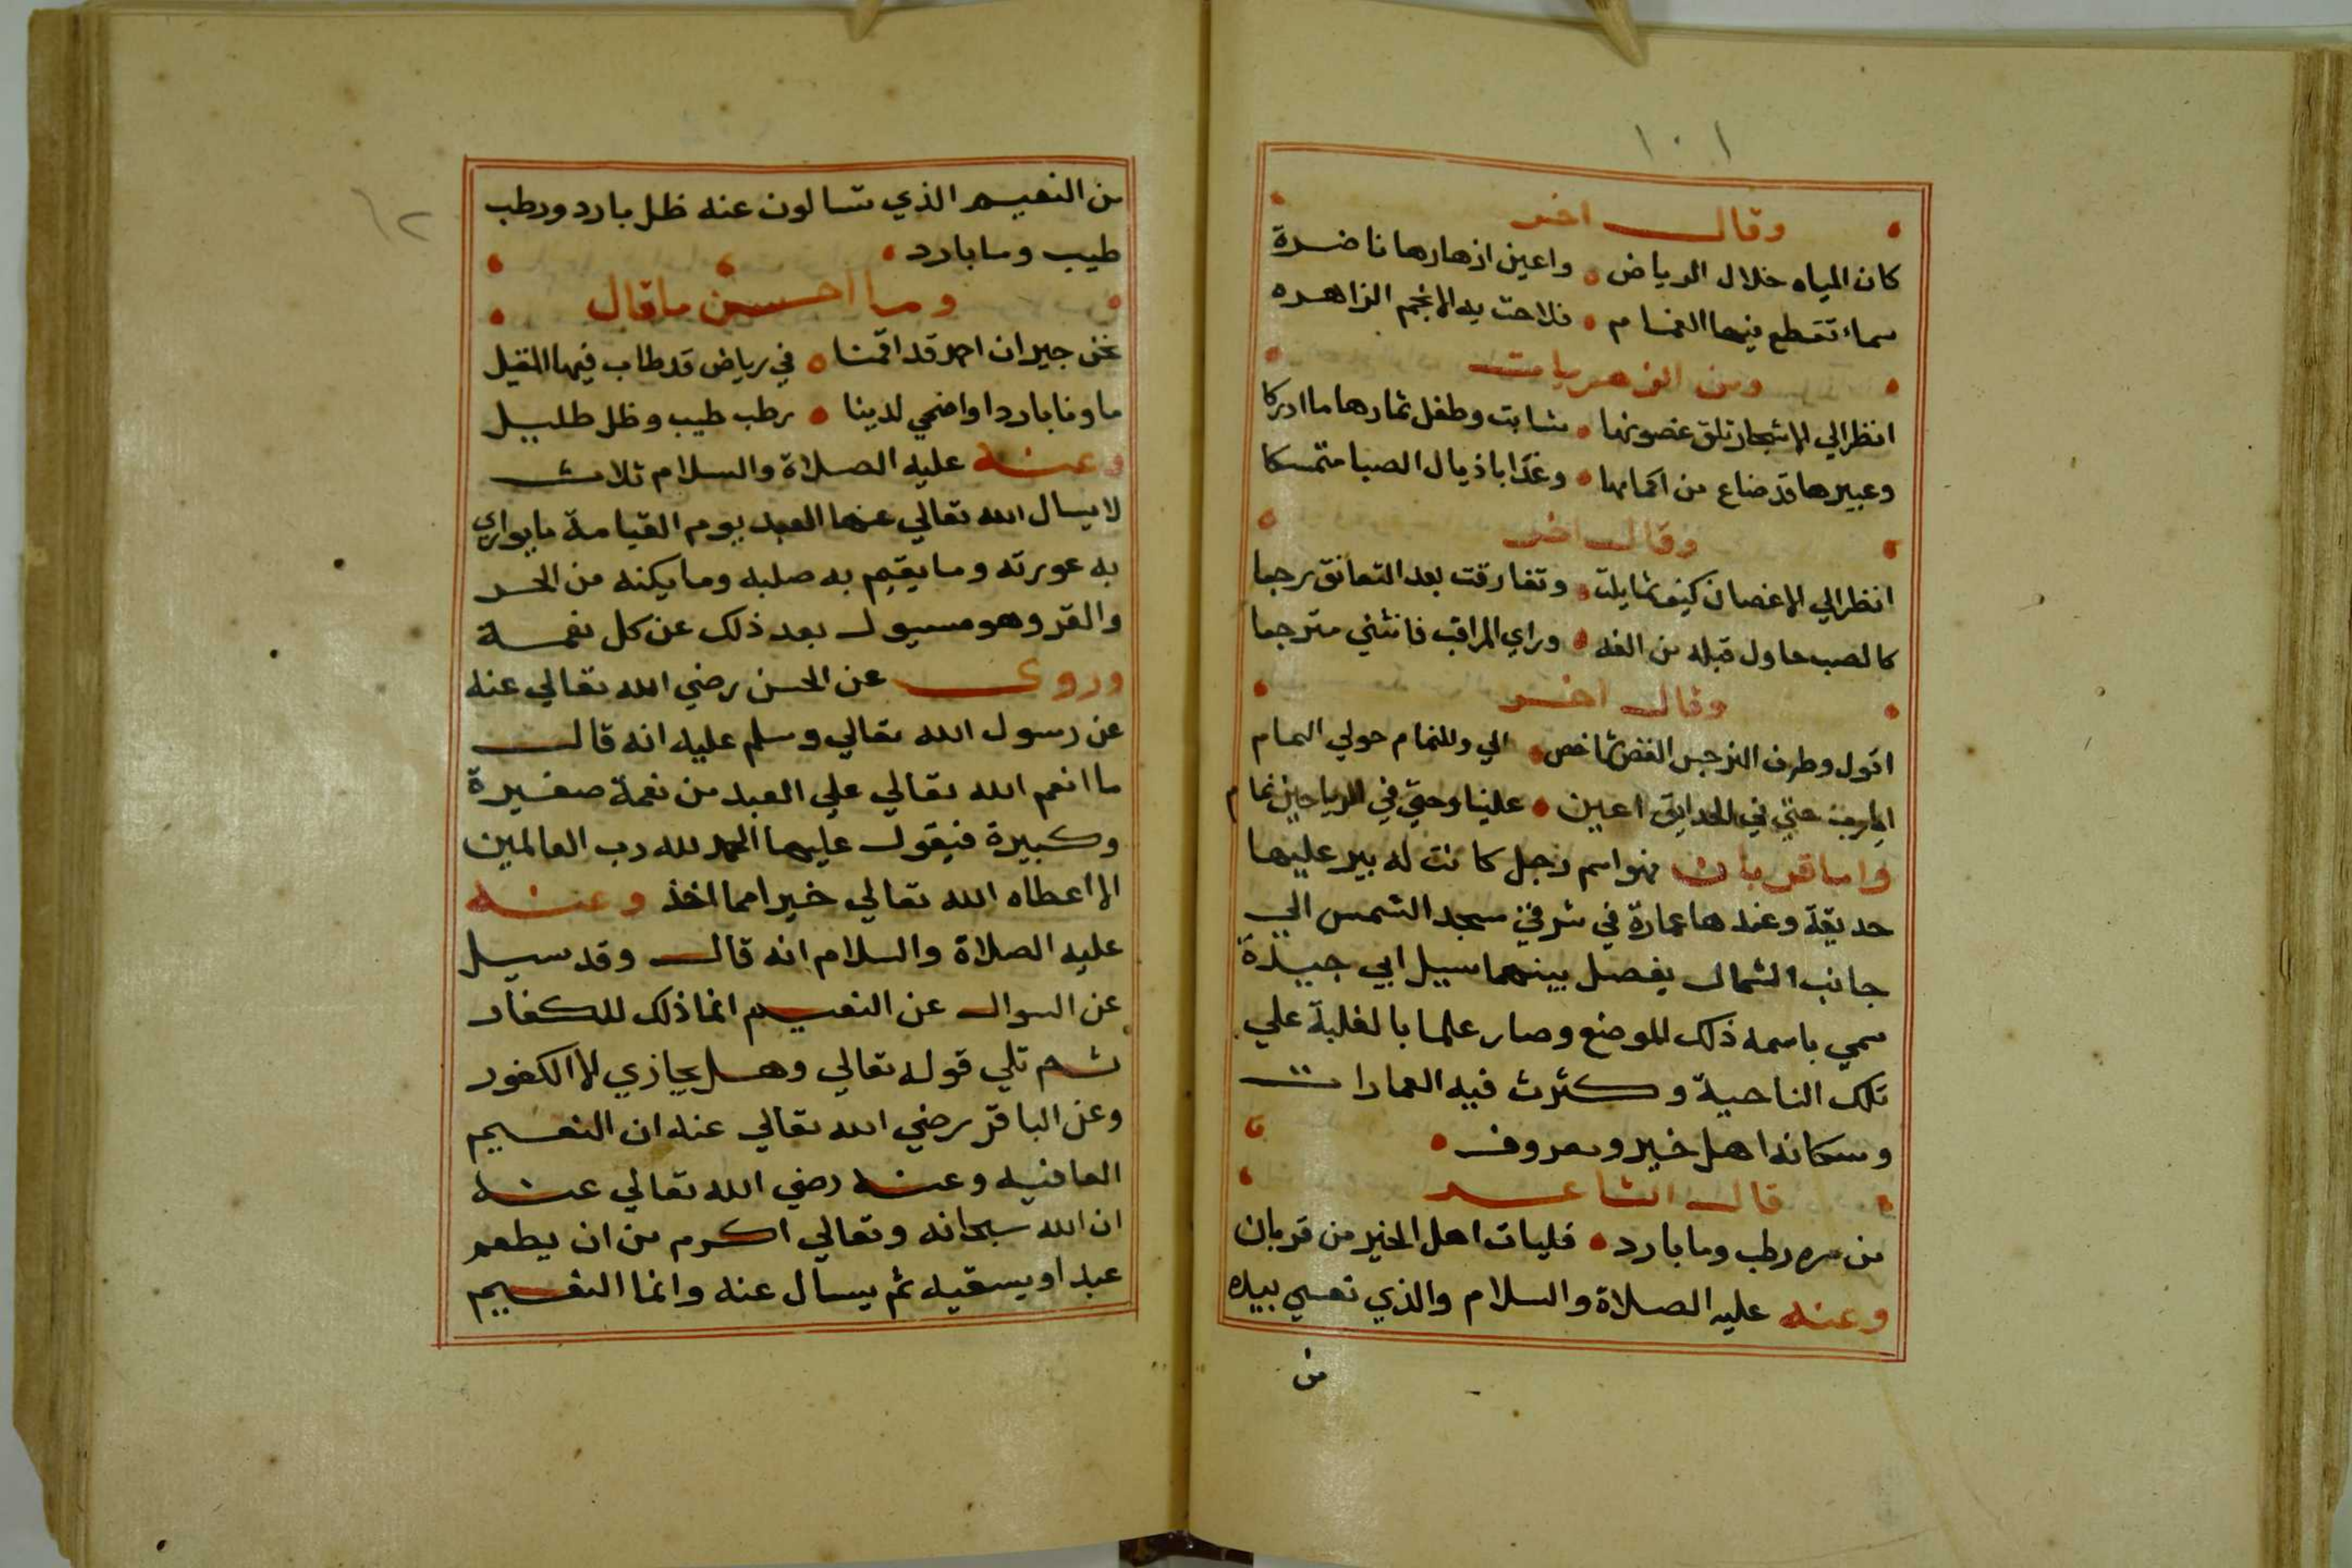 ١٠١
وقال اخر
كان المياه خلال الرياض واعين ازهارها ناضرة
سماء تقطع فيها الغمام فلاحت به الانجم الزاهره
ومن الزهريات
انظر الي الاشجار تلق غصونها شابت وطفل ثمارها ما ادركا
وعبيرها قد ضاع من اكمامها وغدا باذيال الصبا متمسكا
وقال اخر
انظر الي الاغصان كيف تمايلت وتفارقت بعد التعانق رجعا
كالصب حاول قبلة من الفه وراي المراقب فانثني مترجعا
وقال اخر
اقول وطرف النرجس الغض شاخص الي وللنمام حولي المام
ايارب حتي في الحدايق اعين علينا وحتي في الرياحين نمام
واما قربان فهو اسم رجل كانت له بير عليها
حديقة وعندها عمارة في شرقي مسجد الشمس الي
جانب الشمال يفصل بينهما سيل ابي جيدة
سمي باسمه ذلك الموضع وصار علما بالغلبة علي
تلك الناحية وكثرت فيه العمارات
وسكانه اهل خير ومعروف
قال الشاعر
من سره رطب وما بارد فليات اهل الخير من قربان
وعنه عليه الصلاة والسلام والذي نفسي بيده
من
١٠٢
من النعيم الذي تسالون عنه ظل بارد ورطب
طيب وما بارد
وما احسن ما قال
نحن جيران احمد قد اقمنا في رياض قد طاب فيها المقيل
ماونا باردا واضحي لدينا رطب طيب وظل ظليل
وعنه عليه الصلاة والسلام ثلاث
لا يسال الله تعالي عنها العبد يوم القيامة ما يواري
به عورته وما يقيم به صلبه وما يكنه من الحر
والقر وهو مسيول بعد ذلك عن كل نعمة
وروي عن الحسن رضي الله تعالي عنه
عن رسول الله تعالي وسلم عليه انه قال
ما انعم الله تعالي علي العبد من نعمة صغيرة
وكبيرة فيقول عليها الحمد لله رب العالمين
الا اعطاه الله تعالي خيرا مما اخذ وعنه
عليه الصلاة والسلام انه قال وقد سيل
عن السوال عن النعيم انما ذلك للكفار
ثم تلي قوله تعالي وهل يجازي الا الكفور
وعن الباقر رضي الله تعالي عنه ان النعيم
العافيه وعنه رضي الله تعالي عنه
ان الله سبحانه وتعالي اكرم من ان يطعم
عبدا ويسقيه ثم يسال عنه وانما النعيم